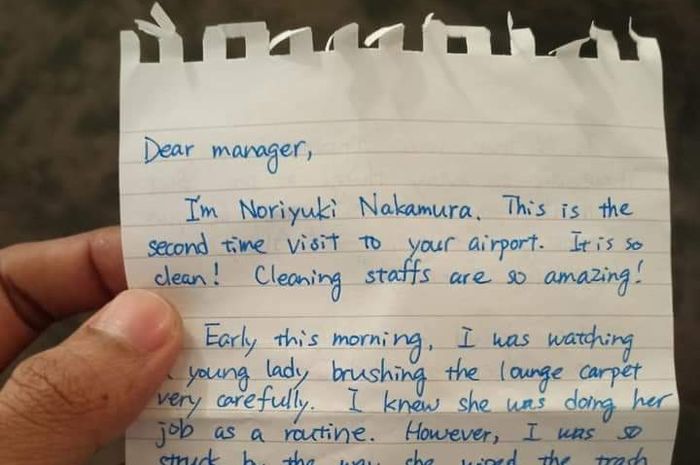 Dear manager,
I'm Noriyuki Nakamura. This is the
second time visit to your airport. It is so
clean! Cleaning staffs are so amazing!
Early this morning, I was watching
young lady brushing the lounge carpet
very carefully. I knew she was doing her
job as a routine. However, I was so
struck by the way she wiped the trash